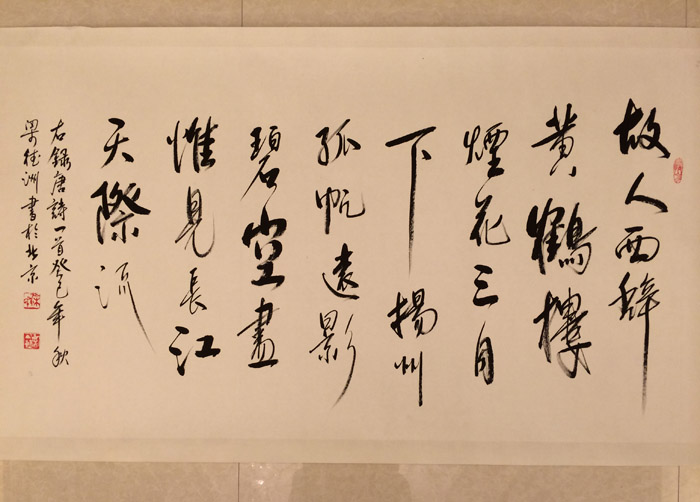 故人西辭
黄鶴樓
煙花三月
下揚州
孤帆遠影
碧空盡
惟見長江
天際流
右録唐詩一首癸巳年秋
梁洲書於北京